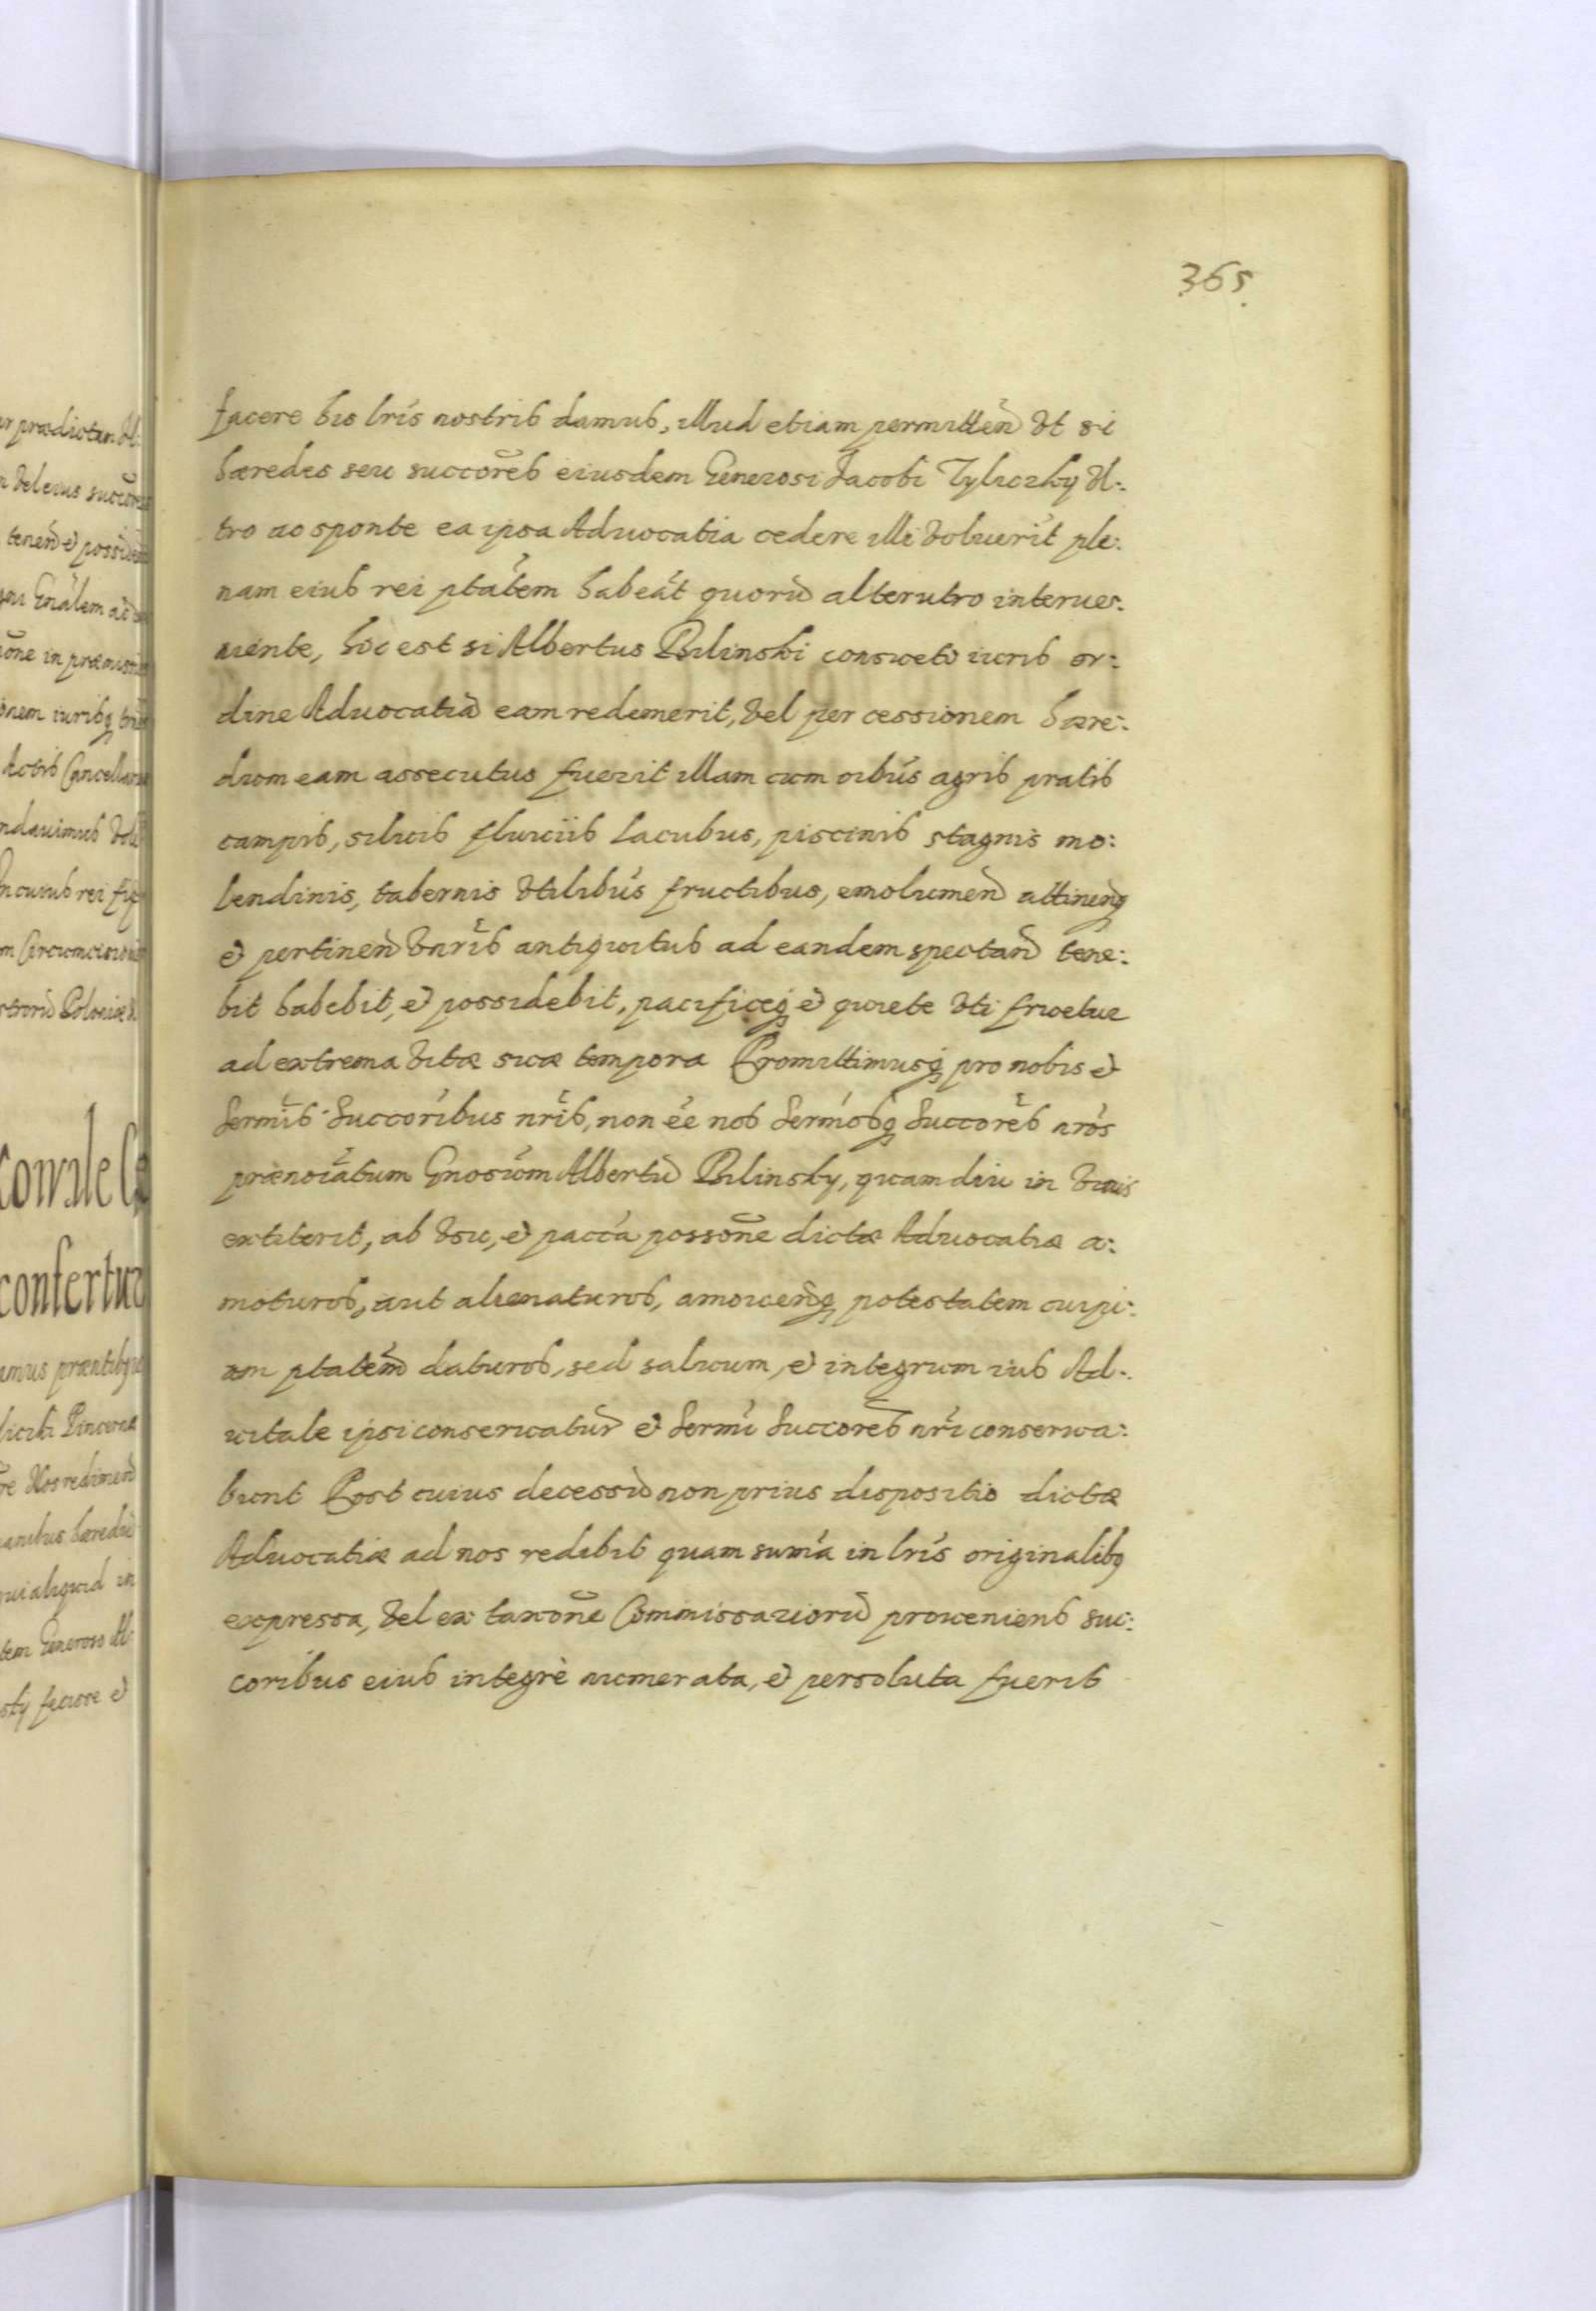 365.
facere his lris nostris damus, illud etiam permitten̄ vt si
hæredes seu succores eiusdem Generosi Jacobi Tyliczky vl:
tro ac sponte ea ipsa Aduocatia cedere illi voluerit ple:
nam eius rei ptātem habeāt quorū alterutro interue:
niente, hoc est si Albertus Bilinski consueto iuris or:
dine Aduocatiā eam redemerit, vel per cessionem hære:
dum eam assecutus fuerit illam cum oibus agris pratis
campis, siluis fluuiis lacubus, piscinis stagnis mo:
lendinis, tabernis vtilibus fructibus, emolumen̄ attinenq
et pertinen̄ vnīis antiquitus ad eandem spectan̄ tene:
bit habebit, et possidebit, pacificeq et quiete vti fruetur
ad extrema vitæ suæ tempora Promittimusq pro nobis et
Sermis Succoribus nris, non ee nos Sermosq Succores nros
prænoiatum Gnosum Albertū Bilinsky, quam diu in viuis
extiterit, ab vsu, et pacca possone dictæ Aduocatiæ a:
moturos, aut alienaturos, amouenq potestatem cuipi:
am ptatem daturos, sed saluum, et integrum ius Ad:
uitale ipsi conseruatur̄ et Sermi Succores nri conserua:
bunt Post cuius decessū non prius dispositio dictæ
Aduocatiæ ad nos redibit quam suma in lris originalibq
expressa, vel ex taxone Commissariorū proueniens suc:
coribus eius integrè numerata, et persoluta fuerit
ur prædictan Al:
vel eius succores
tenen̄ et possiden̄
Gnālem ac
one in præmissis
onem iuribq
Actis Cancellariæ
ndauimus
In cuius rei fid
m Circumcisionis
strorū Poloniæ
confertur
amus præntibq
liczki Pincernæ
re Nos redimen̄
anibus hæredū
ui aliquid in
tem Generoso Al:
sky facere et